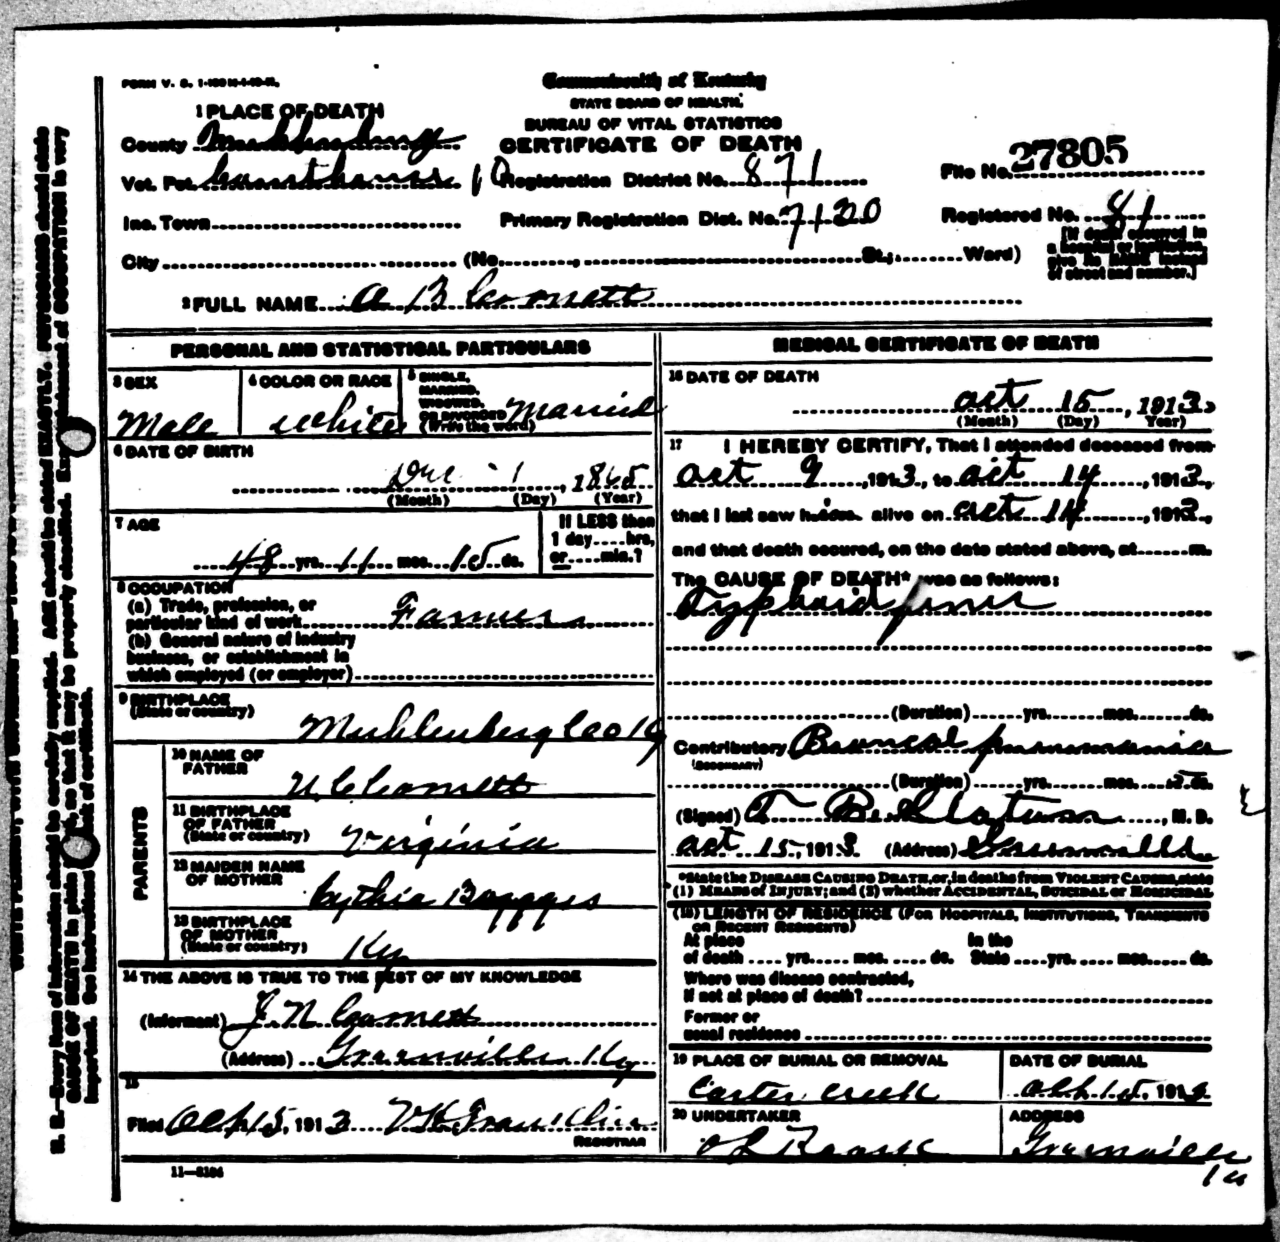 FORM V. S. 1-
Commonwealth of Kentucky
STATE BOARD OF HEALTH.
BUREAU OF VITAL STATISTICS
CERTIFICATE OF DEATH
1 PLACE OF DEATH
County Muhlenberg
Vot. Pct. Courthouse 10
Registration District No. 871
File No. 27805
Inc. Town
Primary Registration Dist. No. 7120
Registered No. 81
City (No. , St.; Ward)
[If death occurred in
a hospital or institution,
give its NAME instead
of street and number.]
2 FULL NAME A B Cornett
PERSONAL AND STATISTICAL PARTICULARS
3 SEX
Male
4 COLOR OR RACE
White
5 SINGLE,
MARRIED,
WIDOWED,
OR DIVORCED
(Write the word)
Married
6 DATE OF BIRTH
Dec 1, 1865
(Month) (Day) (Year)
7 AGE
48 yrs. 11 mos. 15 ds.
If LESS than
1 day....hrs,
or....min.?
8 OCCUPATION
(a) Trade, profession, or
particular kind of work Farmer
(b) General nature of industry
business, or establishment in
which employed (or employer)
9 BIRTHPLACE
(State or country)
Muhlenberg Co Ky
PARENTS
10 NAME OF
FATHER
Cornett
11 BIRTHPLACE
OF FATHER
(State or country)
Virginia
12 MAIDEN NAME
OF MOTHER
Cythia Boggges
13 BIRTHPLACE
OF MOTHER
(State or country)
Ky
14 THE ABOVE IS TRUE TO THE BEST OF MY KNOWLEDGE
(Informant) J. N Cornett
(Address) Greenville Ky
15
Filed Oct 15, 1913 Franklin
REGISTRAR
11-3184
MEDICAL CERTIFICATE OF DEATH
16 DATE OF DEATH
Oct 15, 1913
(Month) (Day) Year)
17 I HEREBY CERTIFY, That I attended deceased from
Oct 9, 1913, to Oct 14, 1913,
that I last saw him alive on Oct 14, 1913,
and that death occured, on the date stated above, at m.
The CAUSE OF DEATH* was as follows:
Typhoid fever
(Duration) yrs. mos. ds.
Contributory Broncal pneumonia
(SECONDARY)
(Duration) yrs. mos. 5 ds.
(Signed) T. B. Slatum, M. D.
Oct 15, 1913 (Address) Greenville
*State the DISEASE CAUSING DEATH, or, in deaths from VIOLENT CAUSES, state
(1) MEANS OF INJURY; and (2) whether ACCIDENTAL, SUICIDAL or HOMICIDAL
(18) LENGTH OF RESIDENCE (FOR HOSPITALS, INSTITUTIONS, TRANSIENTS
OR RECENT RESIDENTS)
At place In the
of death .... yrs. .... mos. .... ds. State .... yrs. .... mos. .... ds.
Where was disease contracted,
If not at place of death?
Former or
usual residence
19 PLACE OF BURIAL OR REMOVAL
Carter Creek
DATE OF BURIAL
Oct 15, 1913
20 UNDERTAKER
Roark
ADDRESS
Greenville
Ky
N. B.—Every item of information should be carefully supplied. AGE should be stated EXACTLY. PHYSICIANS should state
CAUSE OF DEATH in plain so that it may be properly classified. Exact statement of OCCUPATION is very
important. See instructions on back of certificate.